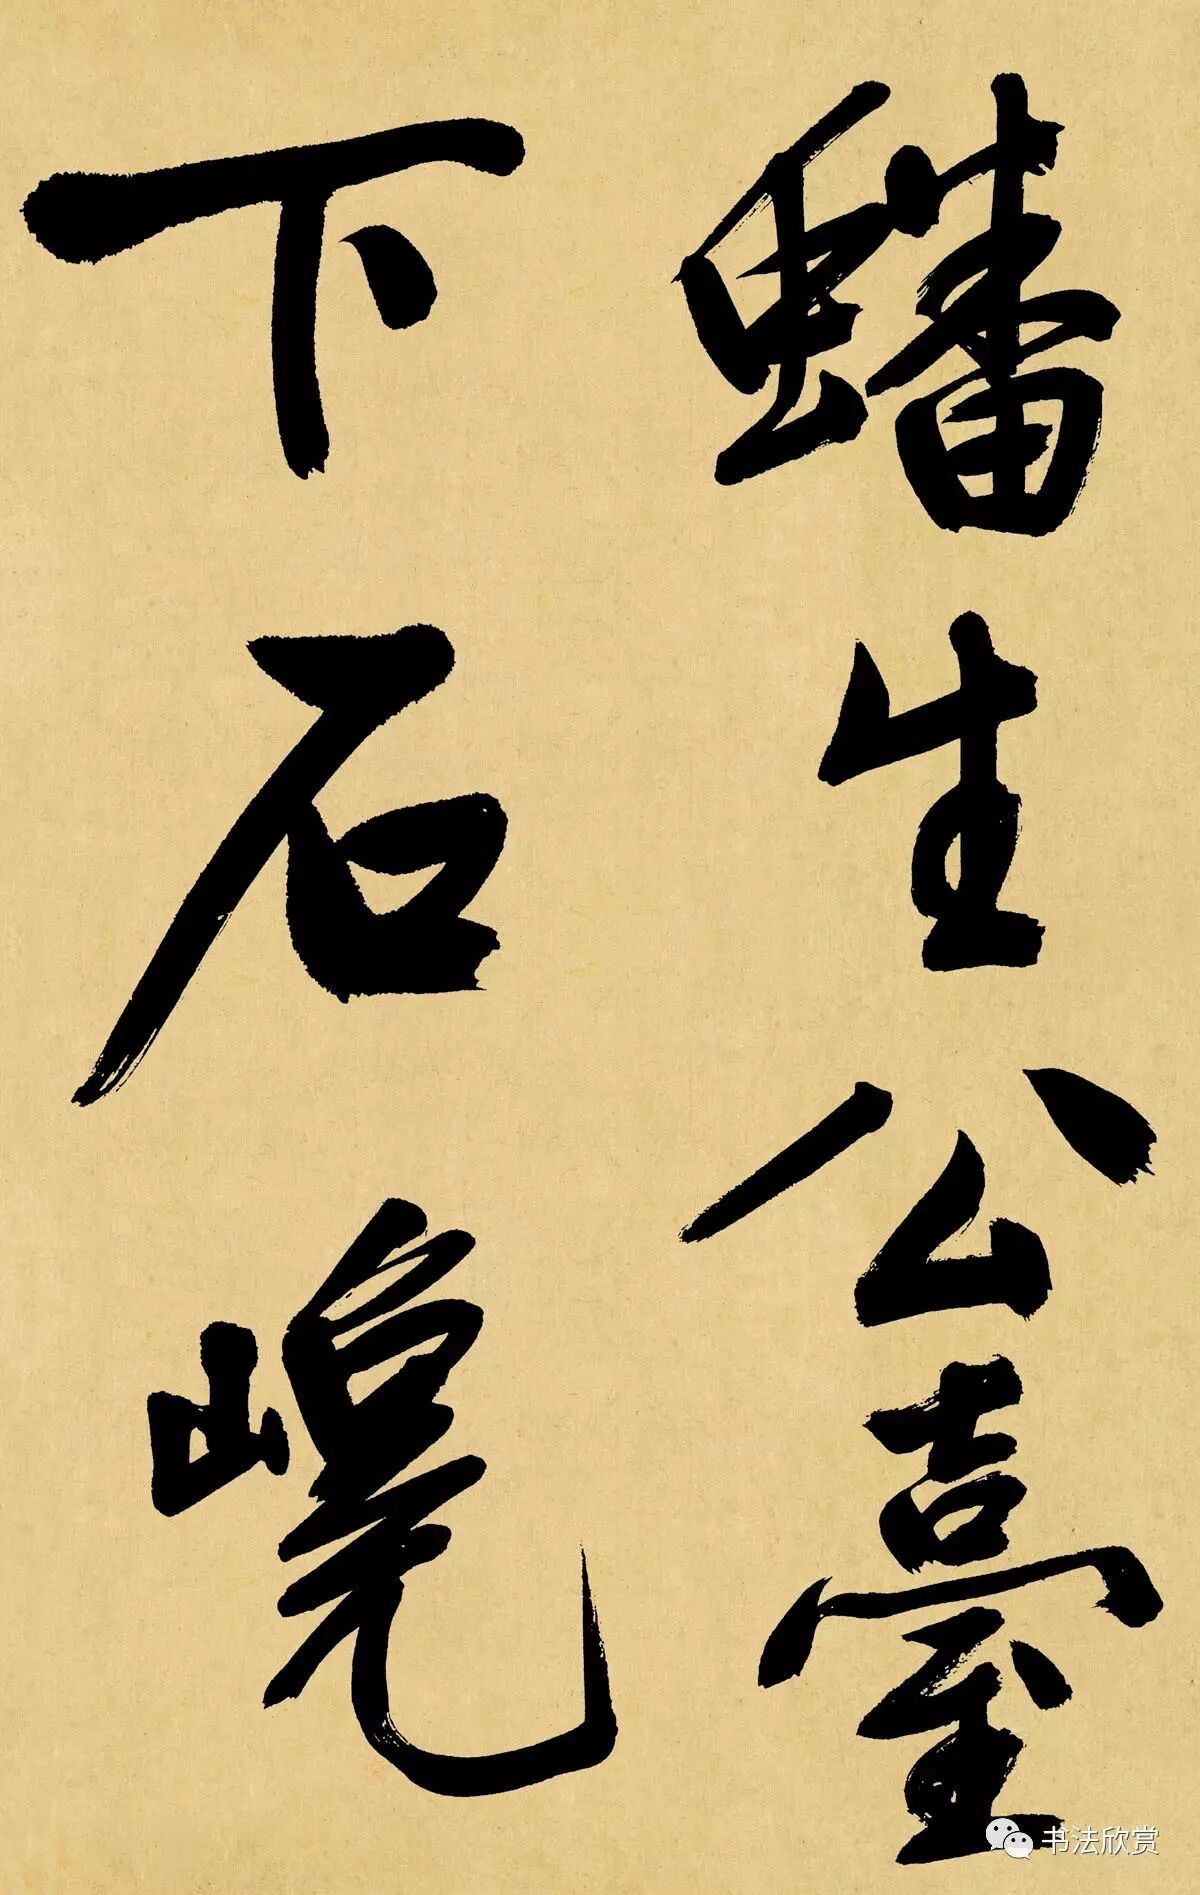 蟠生公臺
下石巉
书法欣赏